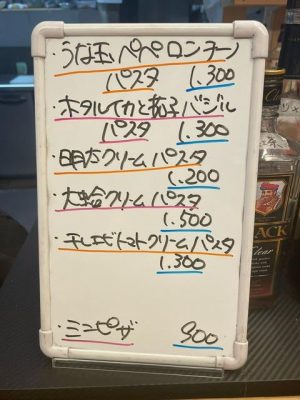 ・うな玉ペペロンチーノ
パスタ 1.300
・ホタルイカと茄子バジル
パスタ 1.300
・明太クリームパスタ
1.200
・大蛤クリームパスタ
1.500
・干しエビトマトクリームパスタ
1.300
・ミニピザ 900
BLACK
Clear